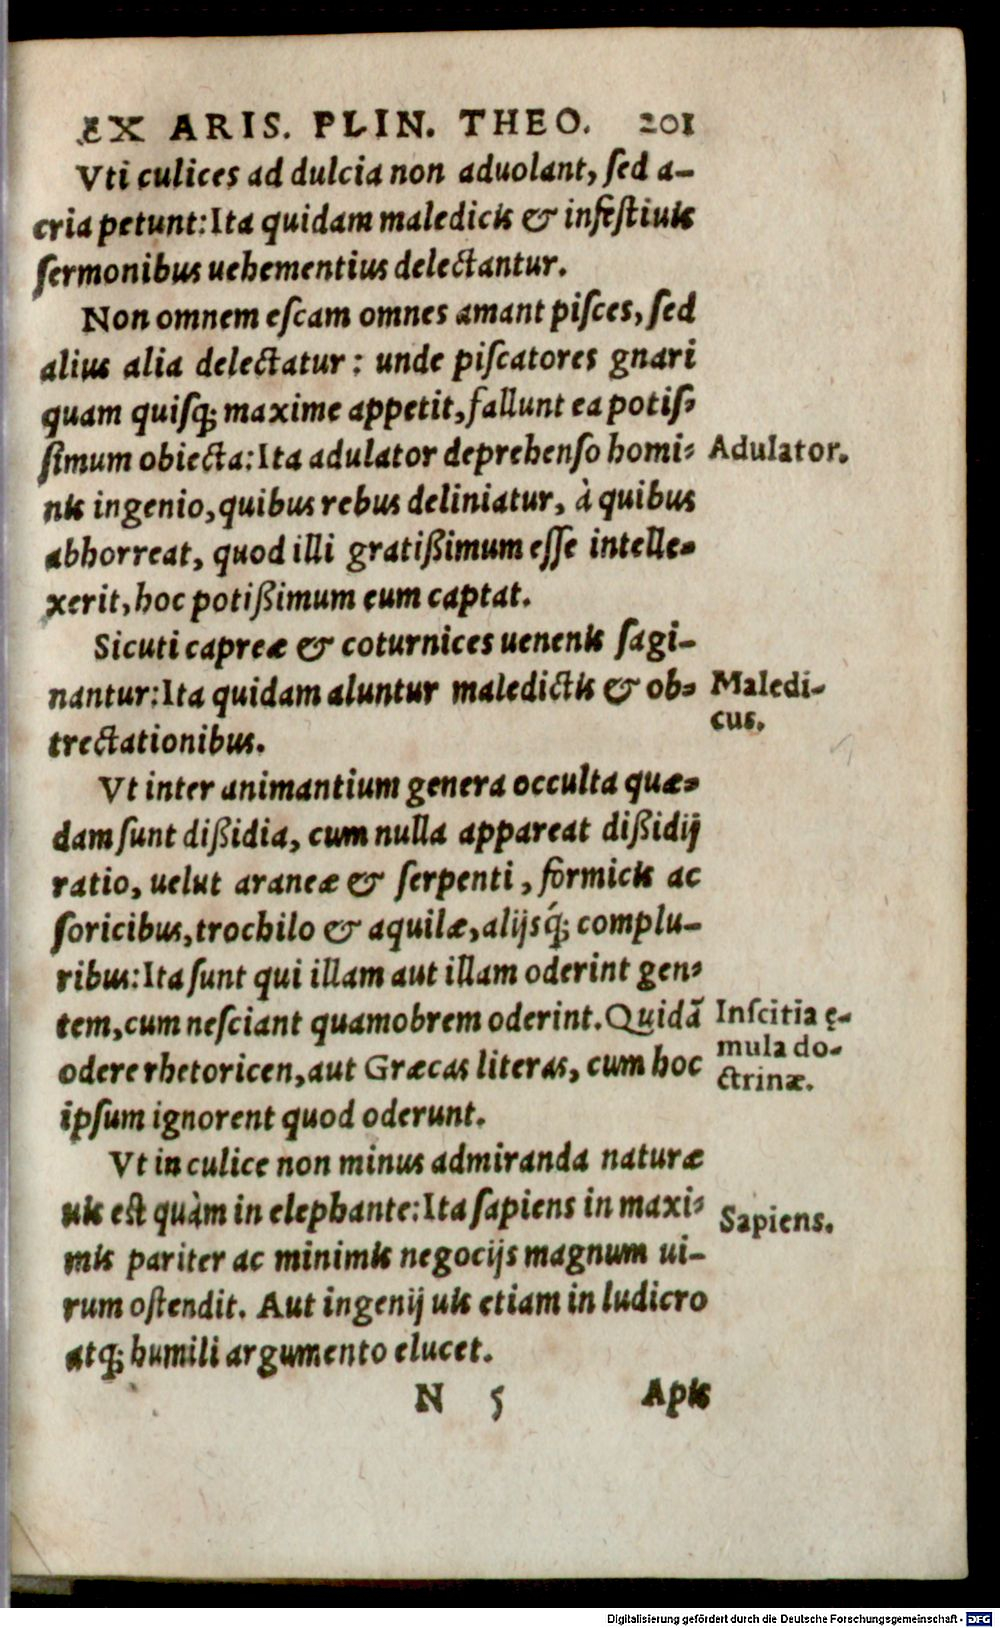 EX ARIS. PLIN. THEO. 201
Vti culices ad dulcia non aduolant, ſed a-
cria petunt: Ita quidam maledicis & infeſtiuis
ſermonibus uehementius delectantur.
Non omnem eſcam omnes amant piſces, ſed
alius alia delectatur: unde piſcatores gnari
quam quiſq; maxime appetit, fallunt ea potiſ-
ſimum obiecta: Ita adulator deprehenſo homi-
Adulator.
nis ingenio, quibus rebus deliniatur, à quibus
abhorreat, quod illi gratißimum eſſe intelle-
xerit, hoc potißimum eum captat.
Sicuti capreæ & coturnices uenenis ſagi-
nantur: Ita quidam aluntur maledictis & ob-
Maledi-
cus.
trectationibus.
Vt inter animantium genera occulta quæ-
dam ſunt dißidia, cum nulla appareat dißidij
ratio, uelut araneæ & ſerpenti, formicis ac
ſoricibus, trochilo & aquilæ, alijsq́; complu-
ribus: Ita ſunt qui illam aut illam oderint gen-
tem, cum neſciant quamobrem oderint. Quidã
Inſcitia ę-
mula do-
ctrinæ.
odere rhetoricen, aut Græcas literas, cum hoc
ipſum ignorent quod oderunt.
Vt in culice non minus admiranda naturæ
uis est quàm in elephante: Ita ſapiens in maxi-
Sapiens.
mis pariter ac minimis negocijs magnum ui-
rum oſtendit. Aut ingenij uis etiam in ludicro
atq; humili argumento elucet.
N 5 Apis
Digitalisierung gefördert durch die Deutsche Forschungsgemeinschaft - DFG